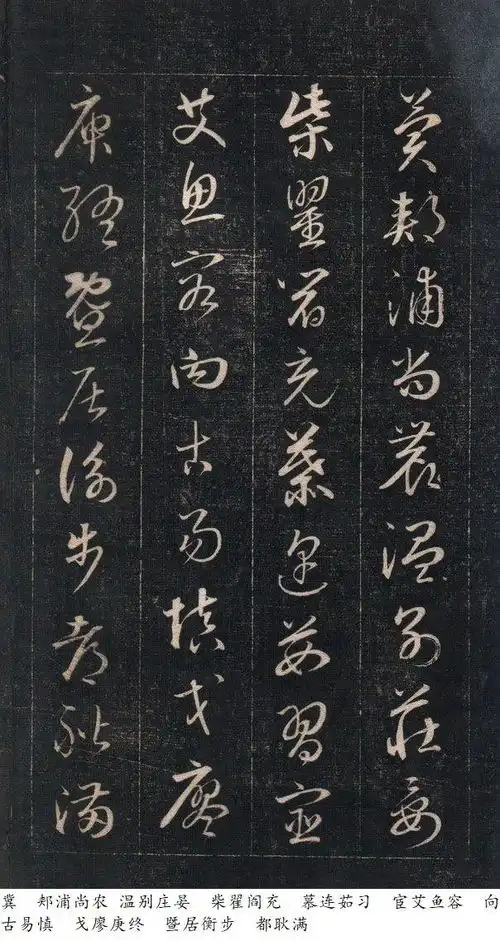 冀郟浦尚農温别莊晏
柴翟閻充慕連茹習宦
艾魚容向古易慎戈廖
庚終暨居衡步都耿滿
冀 郏浦尚农 温别庄晏 柴翟阎充 慕连茹习 宦艾鱼容 向
古易慎 戈廖庚终 暨居衡步 都耿满